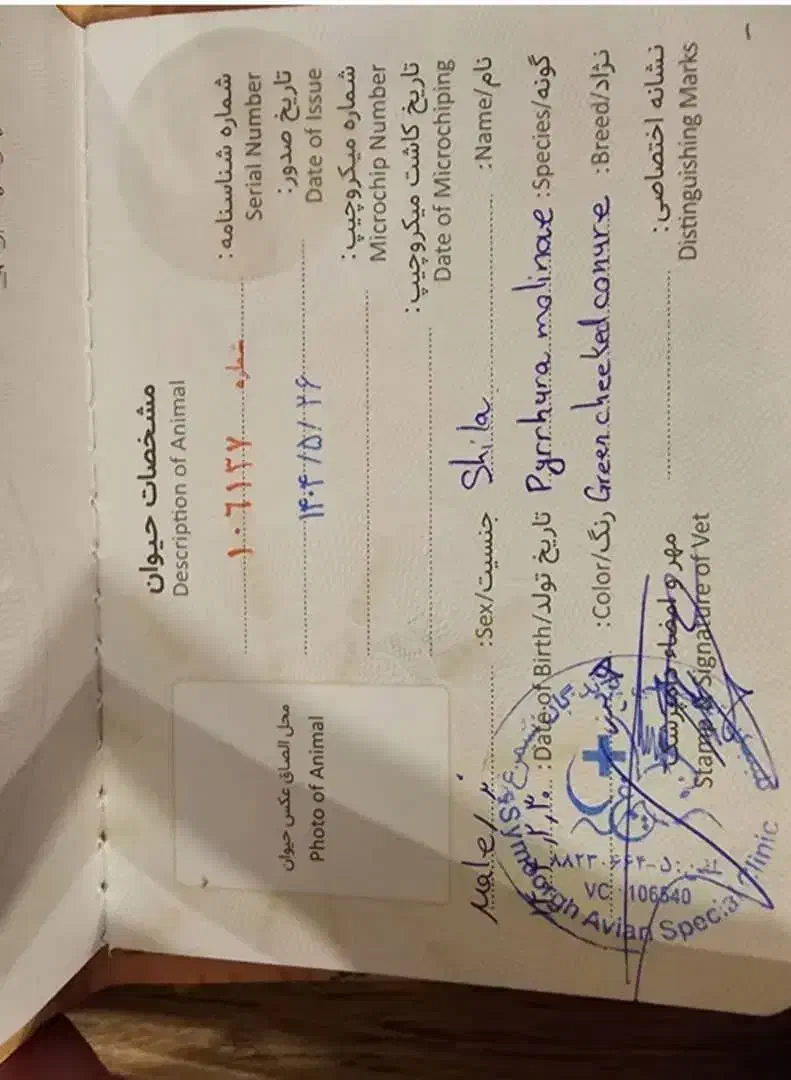 مشخصات حیوان
Description of Animal
شماره شناسنامه :
Serial Number
شماره ۱۰۶۱۳۷
تاریخ صدور:
Date of Issue
۱۴۰۴/۵/۲۶
شماره میکروچیپ:
Microchip Number
تاریخ کاشت میکروچیپ :
Date of Microchiping
محل الصاق عکس حیوان
Photo of Animal
نام/Name: Shila جنسیت/Sex: Male/نر
گونه/Species: Pyrrhura molinae تاریخ تولد/Date of Birth:
نژاد/Breed: Green cheeked conure رنگ/Color:
نشانه اختصاصی:
Distinguishing Marks
مهر و امضاء دامپزشک
Stamp & Signature of Vet
VC 106640
Avian Special Clinic